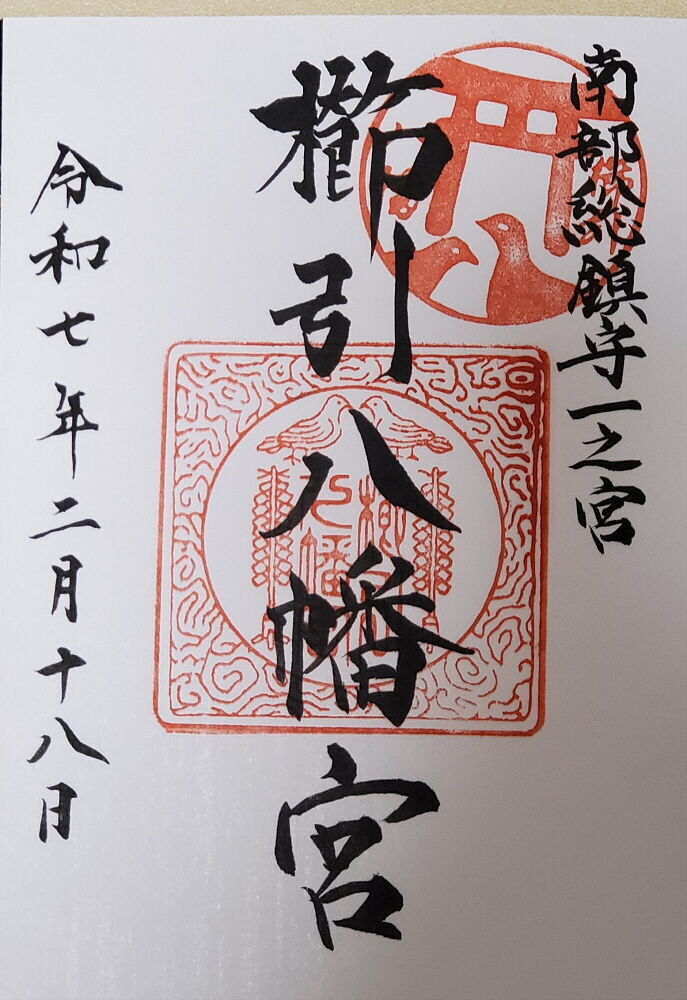 南部総鎮守一之宮
櫛引八幡宮
令和七年二月十八日